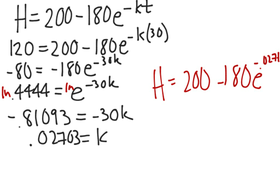 H = 200 - 180e^{-kt}
120 = 200 - 180e^{-k(30)}
-80 = -180e^{-30k}
ln .4444 = ln e^{-30k}
-.81093 = -30k
.02703 = k
H = 200 - 180e